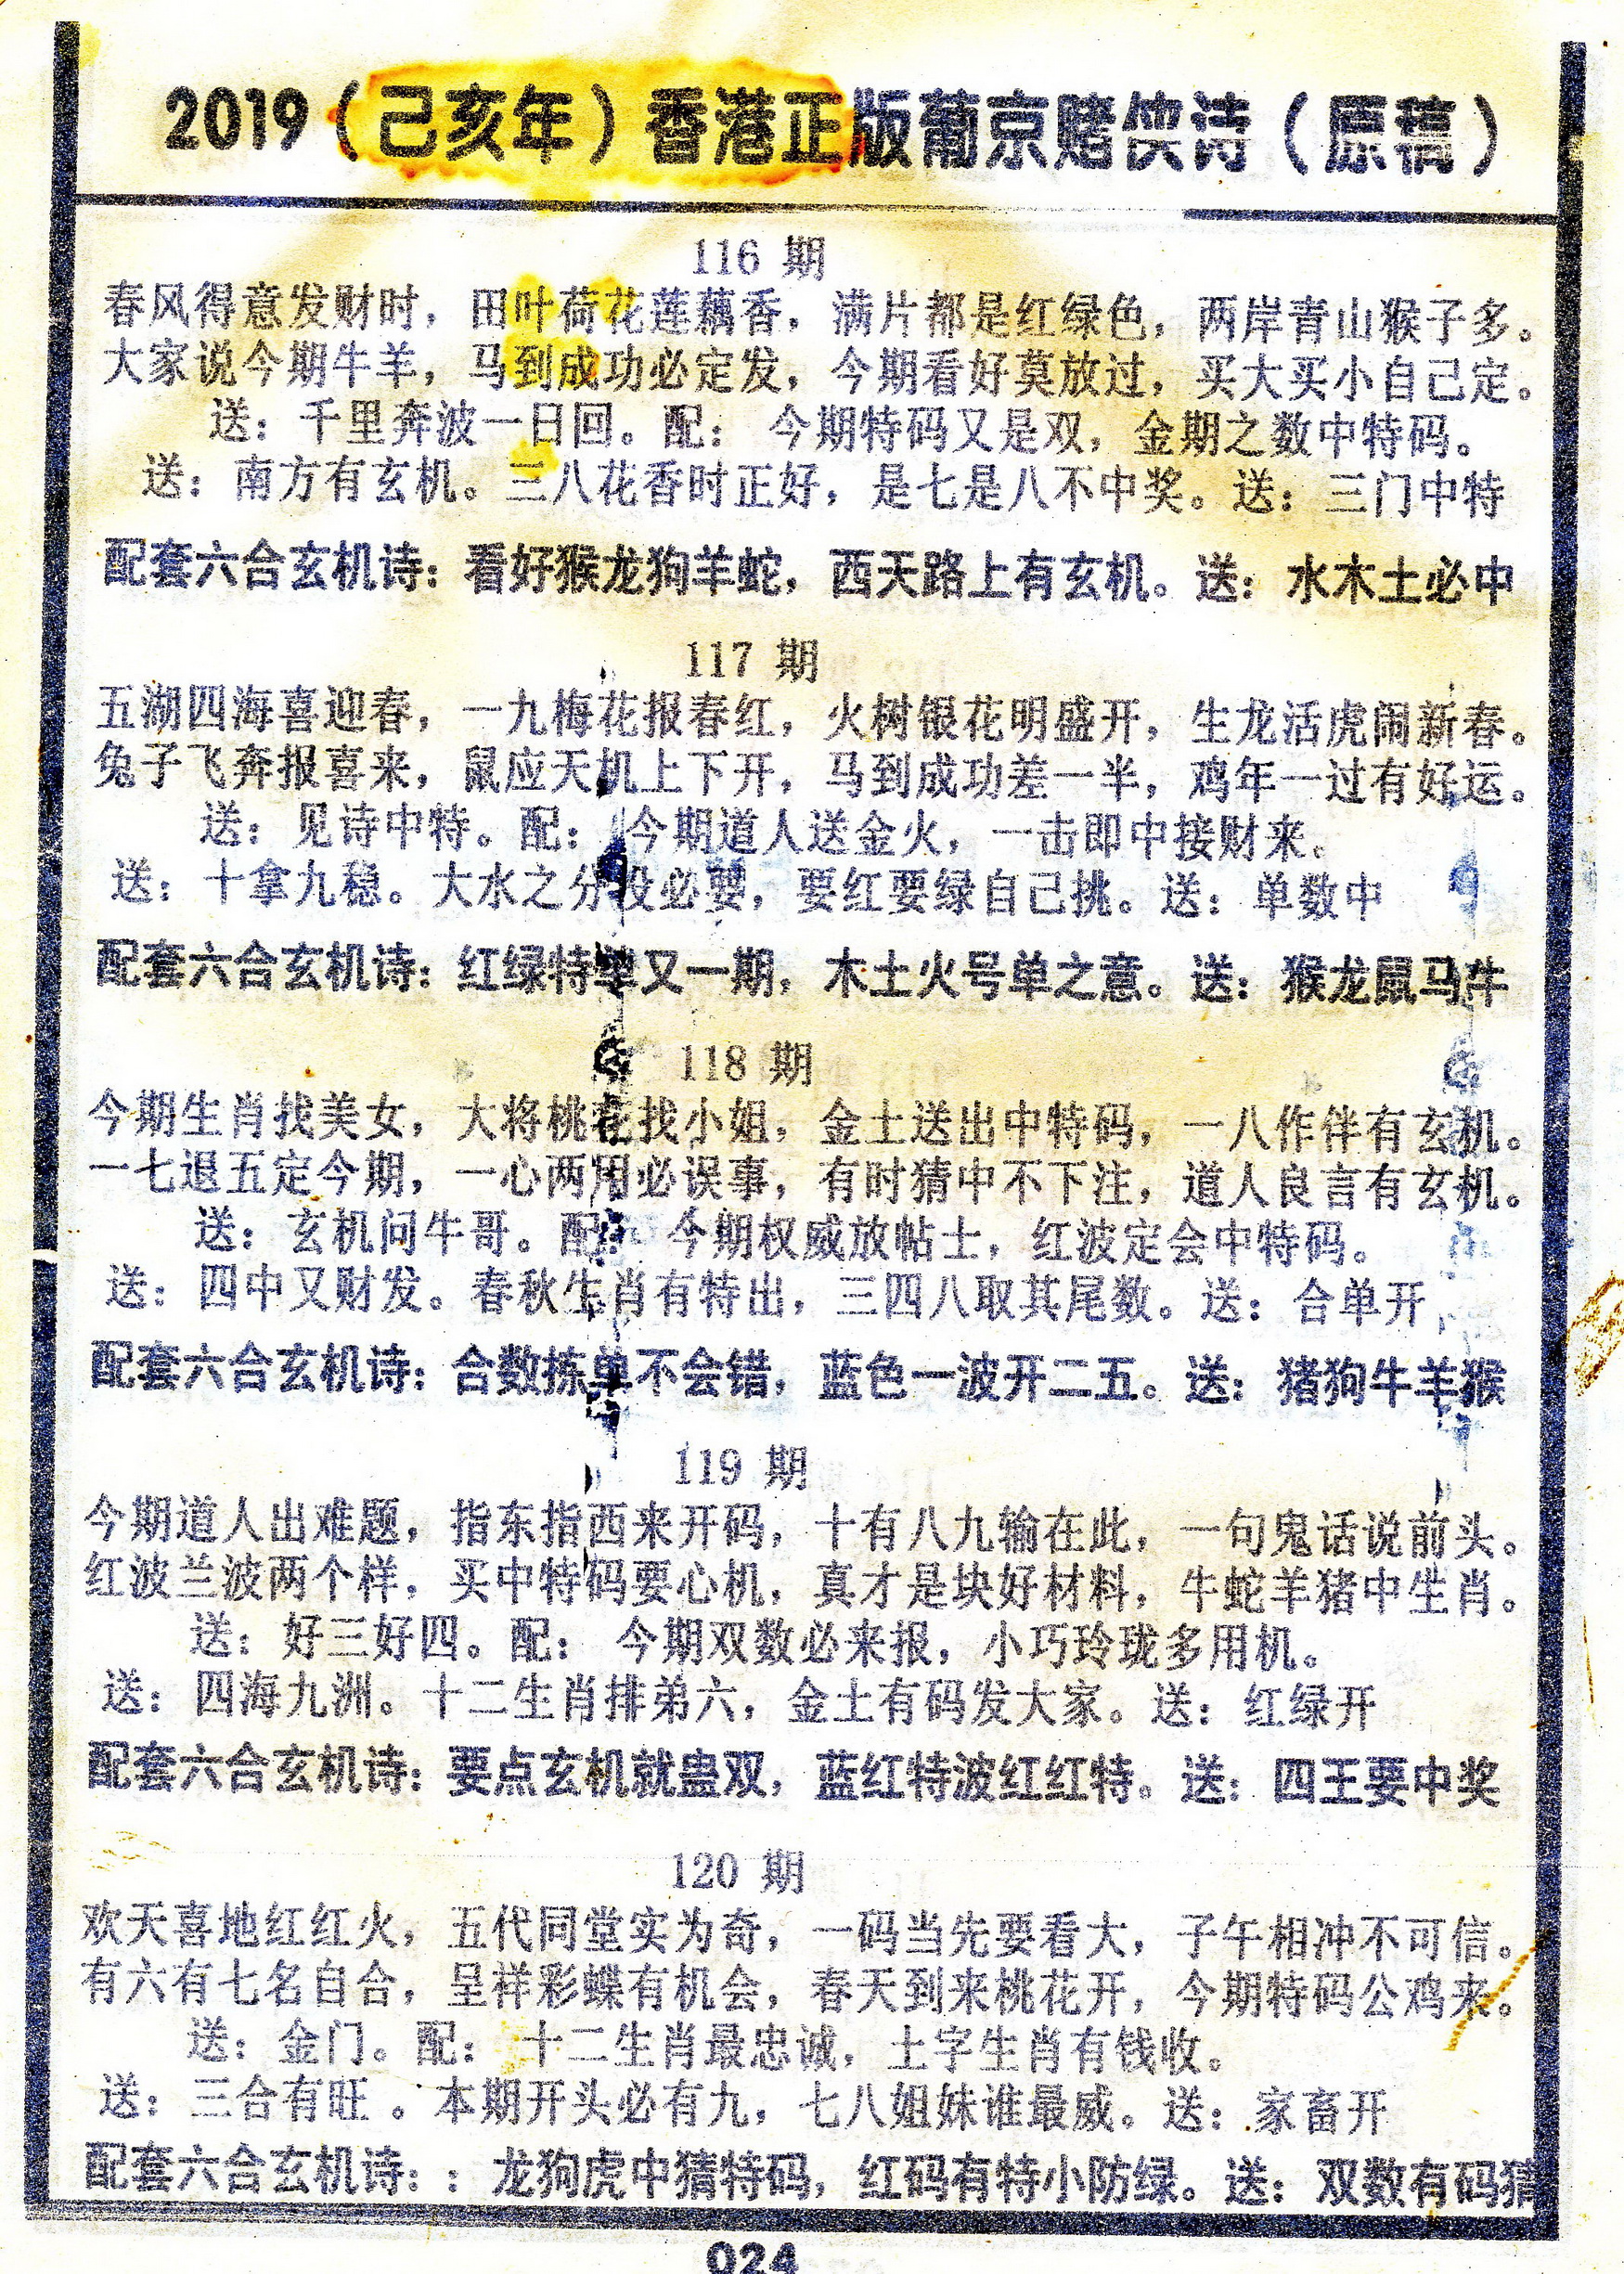 2019（己亥年）香港正版葡京赌侠诗（原稿）
116 期
春风得意发财时，田叶荷花莲藕香，满片都是红绿色，两岸青山猴子多。
大家说今期牛羊，马到成功必定发，今期看好莫放过，买大买小自己定。
送：千里奔波一日回。配：今期特码又是双，金期之数中特码。
送：南方有玄机。三八花香时正好，是七是八不中奖。送：三门中特
配套六合玄机诗：看好猴龙狗羊蛇，西天路上有玄机。送：水木土必中
117 期
五湖四海喜迎春，一九梅花报春红，火树银花明盛开，生龙活虎闹新春。
兔子飞奔报喜来，鼠应天机上下开，马到成功差一半，鸡年一过有好运。
送：见诗中特。配：今期道人送金火，一击即中接财来。
送：十拿九稳。大水之分没必要，要红要绿自己挑。送：单数中
配套六合玄机诗：红绿特单又一期，木土火号单之意。送：猴龙鼠马牛
118 期
今期生肖找美女，大将桃花找小姐，金土送出中特码，一八作伴有玄机。
一七退五定今期，一心两用必误事，有时猜中不下注，道人良言有玄机。
送：玄机问牛哥。配：今期权威放帖士，红波定会中特码。
送：四中又财发。春秋生肖有特出，三四八取其尾数。送：合单开
配套六合玄机诗：合数拣单不会错，蓝色一波开二五。送：猪狗牛羊猴
119 期
今期道人出难题，指东指西来开码，十有八九输在此，一句鬼话说前头。
红波兰波两个样，买中特码要心机，真才是块好材料，牛蛇羊猪中生肖。
送：好三好四。配：今期双数必来报，小巧玲珑多用机。
送：四海九洲。十二生肖排弟六，金土有码发大家。送：红绿开
配套六合玄机诗：要点玄机就蛊双，蓝红特波红红特。送：四王要中奖
120 期
欢天喜地红红火，五代同堂实为奇，一码当先要看大，子午相冲不可信。
有六有七名自合，呈祥彩蝶有机会，春天到来桃花开，今期特码公鸡来。
送：金门。配：十二生肖最忠诚，土字生肖有钱收。
送：三合有旺。本期开头必有九，七八姐妹谁最威。送：家畜开
配套六合玄机诗：：龙狗虎中猜特码，红码有特小防绿。送：双数有码猜
024